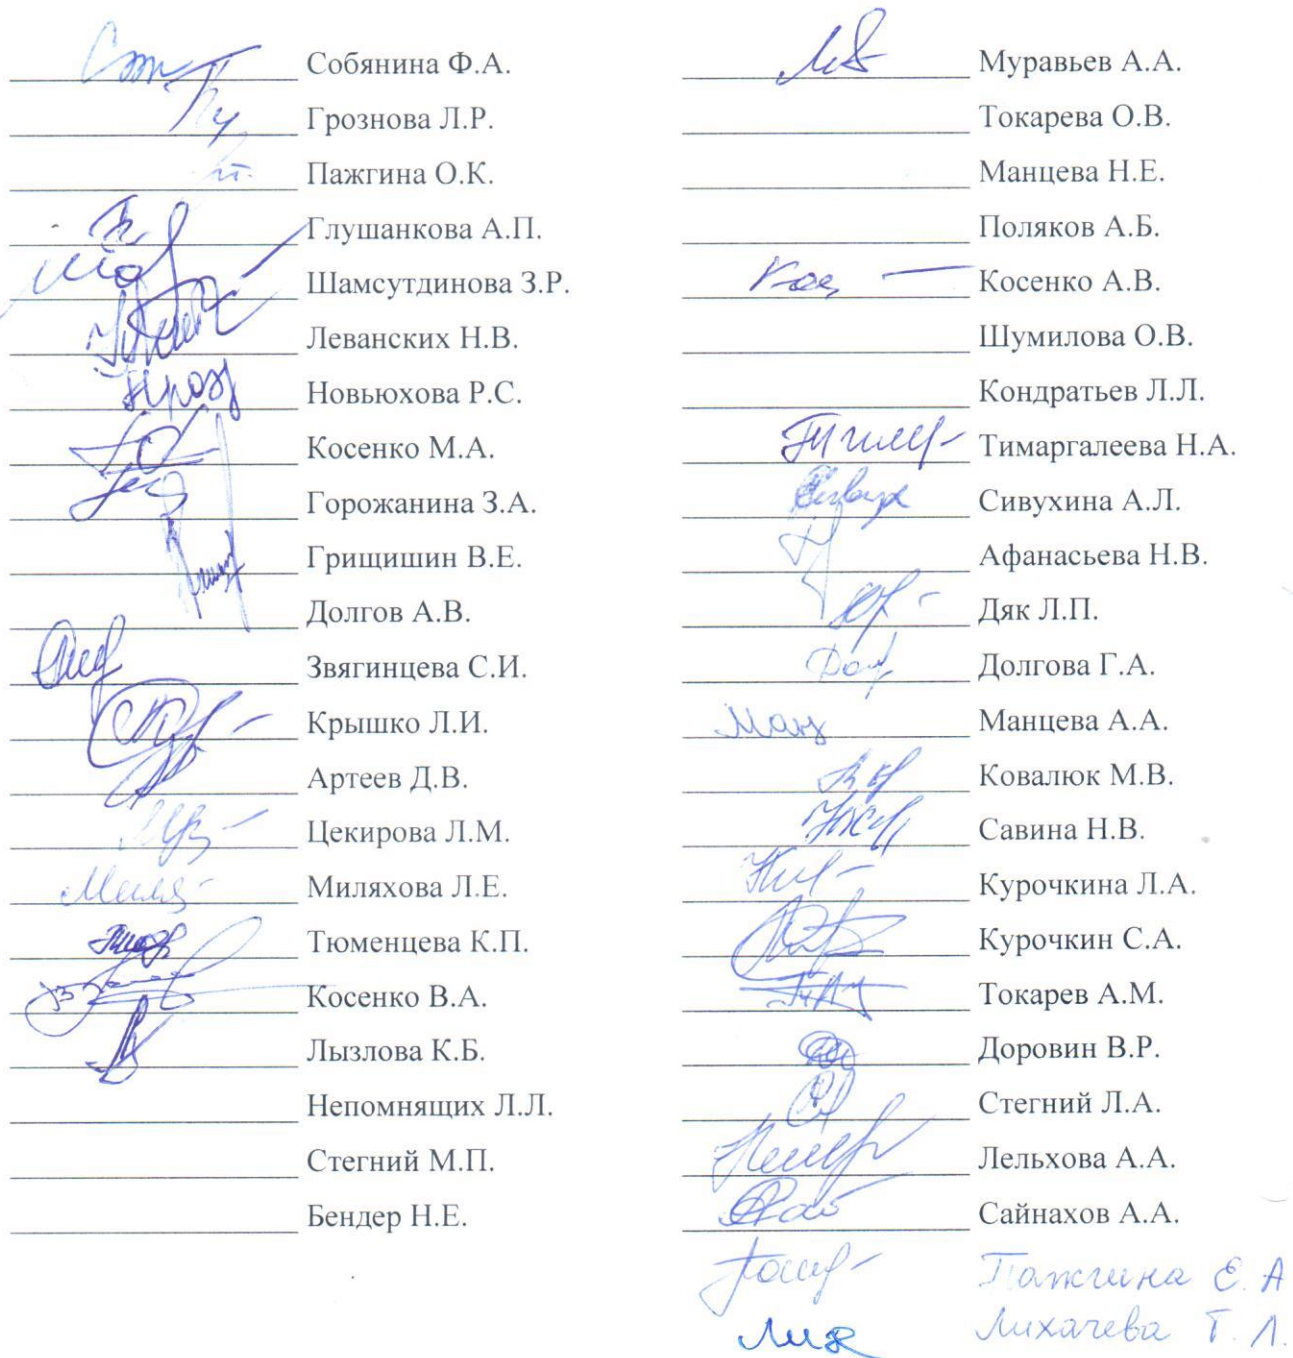 Собянина Ф.А.
Грознова Л.Р.
Пажгина О.К.
Глушанкова А.П.
Шамсутдинова З.Р.
Леванских Н.В.
Новьюхова Р.С.
Косенко М.А.
Горожанина З.А.
Грищишин В.Е.
Долгов А.В.
Звягинцева С.И.
Крышко Л.И.
Артеев Д.В.
Цекирова Л.М.
Миляхова Л.Е.
Тюменцева К.П.
Косенко В.А.
Лызлова К.Б.
Непомнящих Л.Л.
Стегний М.П.
Бендер Н.Е.
Муравьев А.А.
Токарева О.В.
Манцева Н.Е.
Поляков А.Б.
Косенко А.В.
Шумилова О.В.
Кондратьев Л.Л.
Тимаргалеева Н.А.
Сивухина А.Л.
Афанасьева Н.В.
Дяк Л.П.
Долгова Г.А.
Манцева А.А.
Ковалюк М.В.
Савина Н.В.
Курочкина Л.А.
Курочкин С.А.
Токарев А.М.
Доровин В.Р.
Стегний Л.А.
Лельхова А.А.
Сайнахов А.А.
Пажгина Е.А
Лихачева Т.Л.